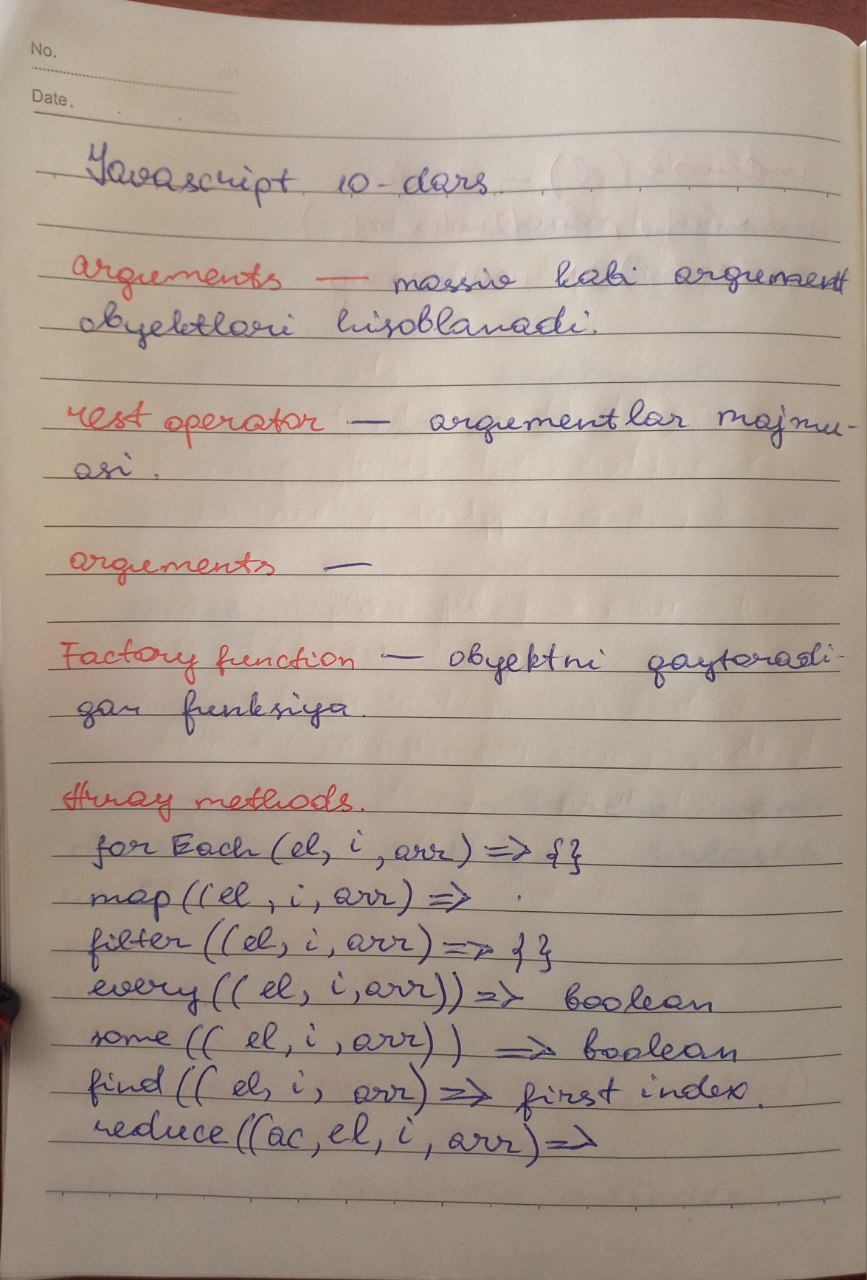 No.
Date.
Javascript 10-dars
arguments — massiv kabi argument
obyektlari hisoblanadi.
rest operator — argumentlar majmu-
asi.
arguments —
Factory function — obyektni qaytaradi-
gan funksiya.
Array methods.
forEach(el, i, arr) => {}
map((el, i, arr) =>
filter((el, i, arr) => {}
every((el, i, arr)) => boolean
some((el, i, arr)) => boolean
find((el, i, arr) => first index.
reduce((ac, el, i, arr) =>